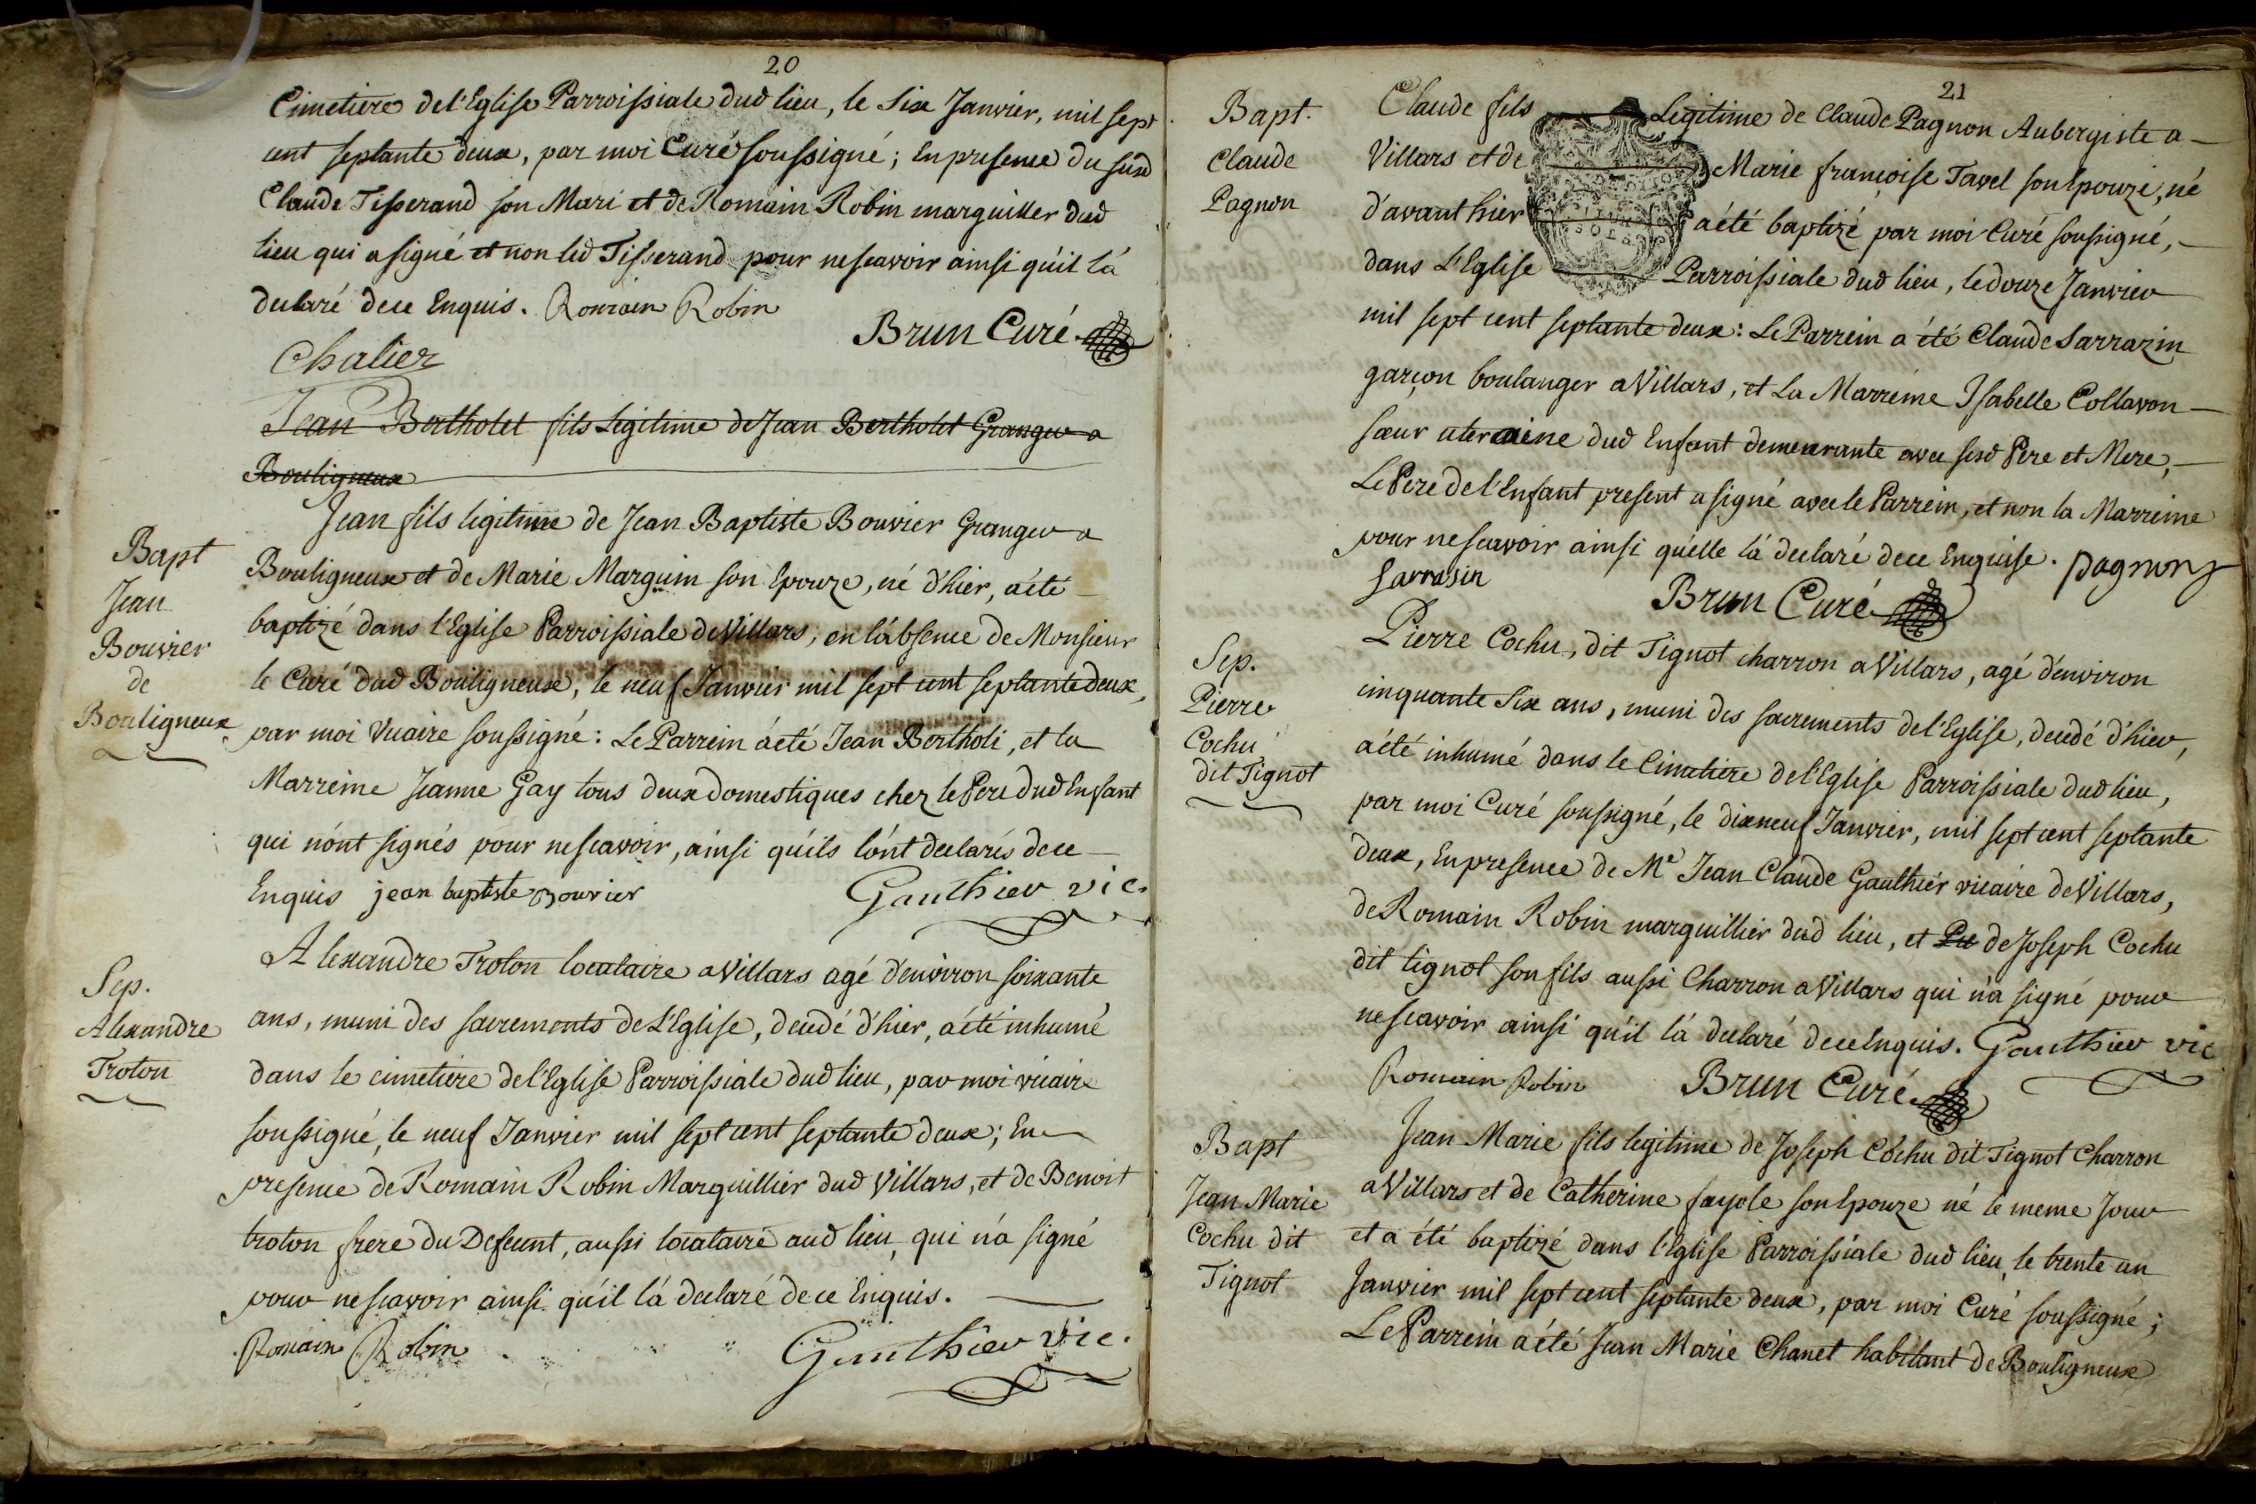 20
Cimetiere de l'Eglise Parroissiale dud lieu, le Six Janvier, mil sept
cent septante deux, par moi Curé soussigné; En presence du susd
Claude Tisserand son Mari et de Romain Robin marguiller dud
lieu qui a signé et non led Tisserand pour ne scavoir ainsi qu'il l'á
declaré de ce Enquis. Romain Robin
Brun Curé
Chalier
Jean Bertholet fils Legitime de Jean Bertholet Granger a
Bouligneux
Bapt
Jean
Bouvier
de
Bouligneux
Jean fils legitime de Jean Baptiste Bouvier Granger a
Bouligneux et de Marie Marguin son Epouze, né d'hier, a été
baptizé dans l'Eglise Parroissiale de Villars, en l'absence de Monsieur
le Curé dud Bouligneux, le neuf Janvier mil sept cent septante deux,
par moi Vicaire soussigné: Le Parrein a été Jean Bertholi, et la
Marreine Jeanne Gay tous deux domestiques chez le Pere dud Enfant
qui n'ont signés pour ne scavoir, ainsi qu'ils l'ont declarés de ce
Enquis jean baptiste Bouvier
Gauthier vic.
Sep.
Alexandre
Troton
Alexandre Troton locataire a Villars agé d'environ soixante
ans, muni des sacrements de L'Eglise, decedé d'hier, a été inhumé
dans le cimetiere de l'Eglise Parroissiale dud lieu, par moi vicaire
soussigné, le neuf Janvier mil sept cent septante deux; En
presence de Romain Robin Marguillier dud Villars, et de Benoit
troton frere du Defeunt, aussi locataire aud lieu, qui n'a signé
pour ne scavoir ainsi qu'il l'á declaré de ce Enquis.
Romain Robin
Gauthier vic.
21
Bapt.
Claude
Pagnon
Claude fils Legitime de Claude Pagnon Aubergiste a
Villars et de Marie françoise Tavel son Epouze, né
d'avant hier a été baptizé par moi Curé soussigné,
dans L'Eglise Parroissiale dud lieu, le douze Janvier
mil sept cent septante deux: Le Parrein a été Claude Sarrazin
garçon boulanger a Villars, et La Marreine Isabelle Collavon
sœur uteraine dud Enfant demeurante avec sesd Pere et Mere,
Le Pere de l'Enfant present a signé avec le Parrein, et non la Marreine
pour ne scavoir ainsi qu'elle l'á declaré de ce Enquise. pagnon
Sarrasin
Brun Curé
Sep.
Pierre
Cochu
dit Tignot
Pierre Cochu, dit Tignot charron a Villars, agé d'environ
cinquante Six ans, muni des sacrements de l'Eglise, decedé d'hier,
a été inhumé dans le Cimetiere de l'Eglise Parroissiale dud lieu,
par moi Curé soussigné, le dixneuf Janvier, mil sept cent septante
deux, En presence de Mr Jean Claude Gauthiér vicaire de Villars,
de Romain Robin marguillier dud lieu, et de Joseph Cochu
dit tignot son fils aussi Charron a Villars qui n'a signé pour
ne scavoir ainsi qu'il l'á declaré de ce Enquis. Gauthier vic
Romain Robin
Brun Curé
Bapt
Jean Marie
Cochu dit
Tignot
Jean Marie fils legitime de Joseph Cochu dit Tignot Charron
a Villars et de Catherine fayole son Epouze né le meme Jour
et a été baptizé dans l'Eglise Parroissiale dud lieu, le trente un
Janvier mil sept cent septante deux, par moi Curé soussigné;
Le Parrein a été Jean Marie Chanet habitant de Bouligneux